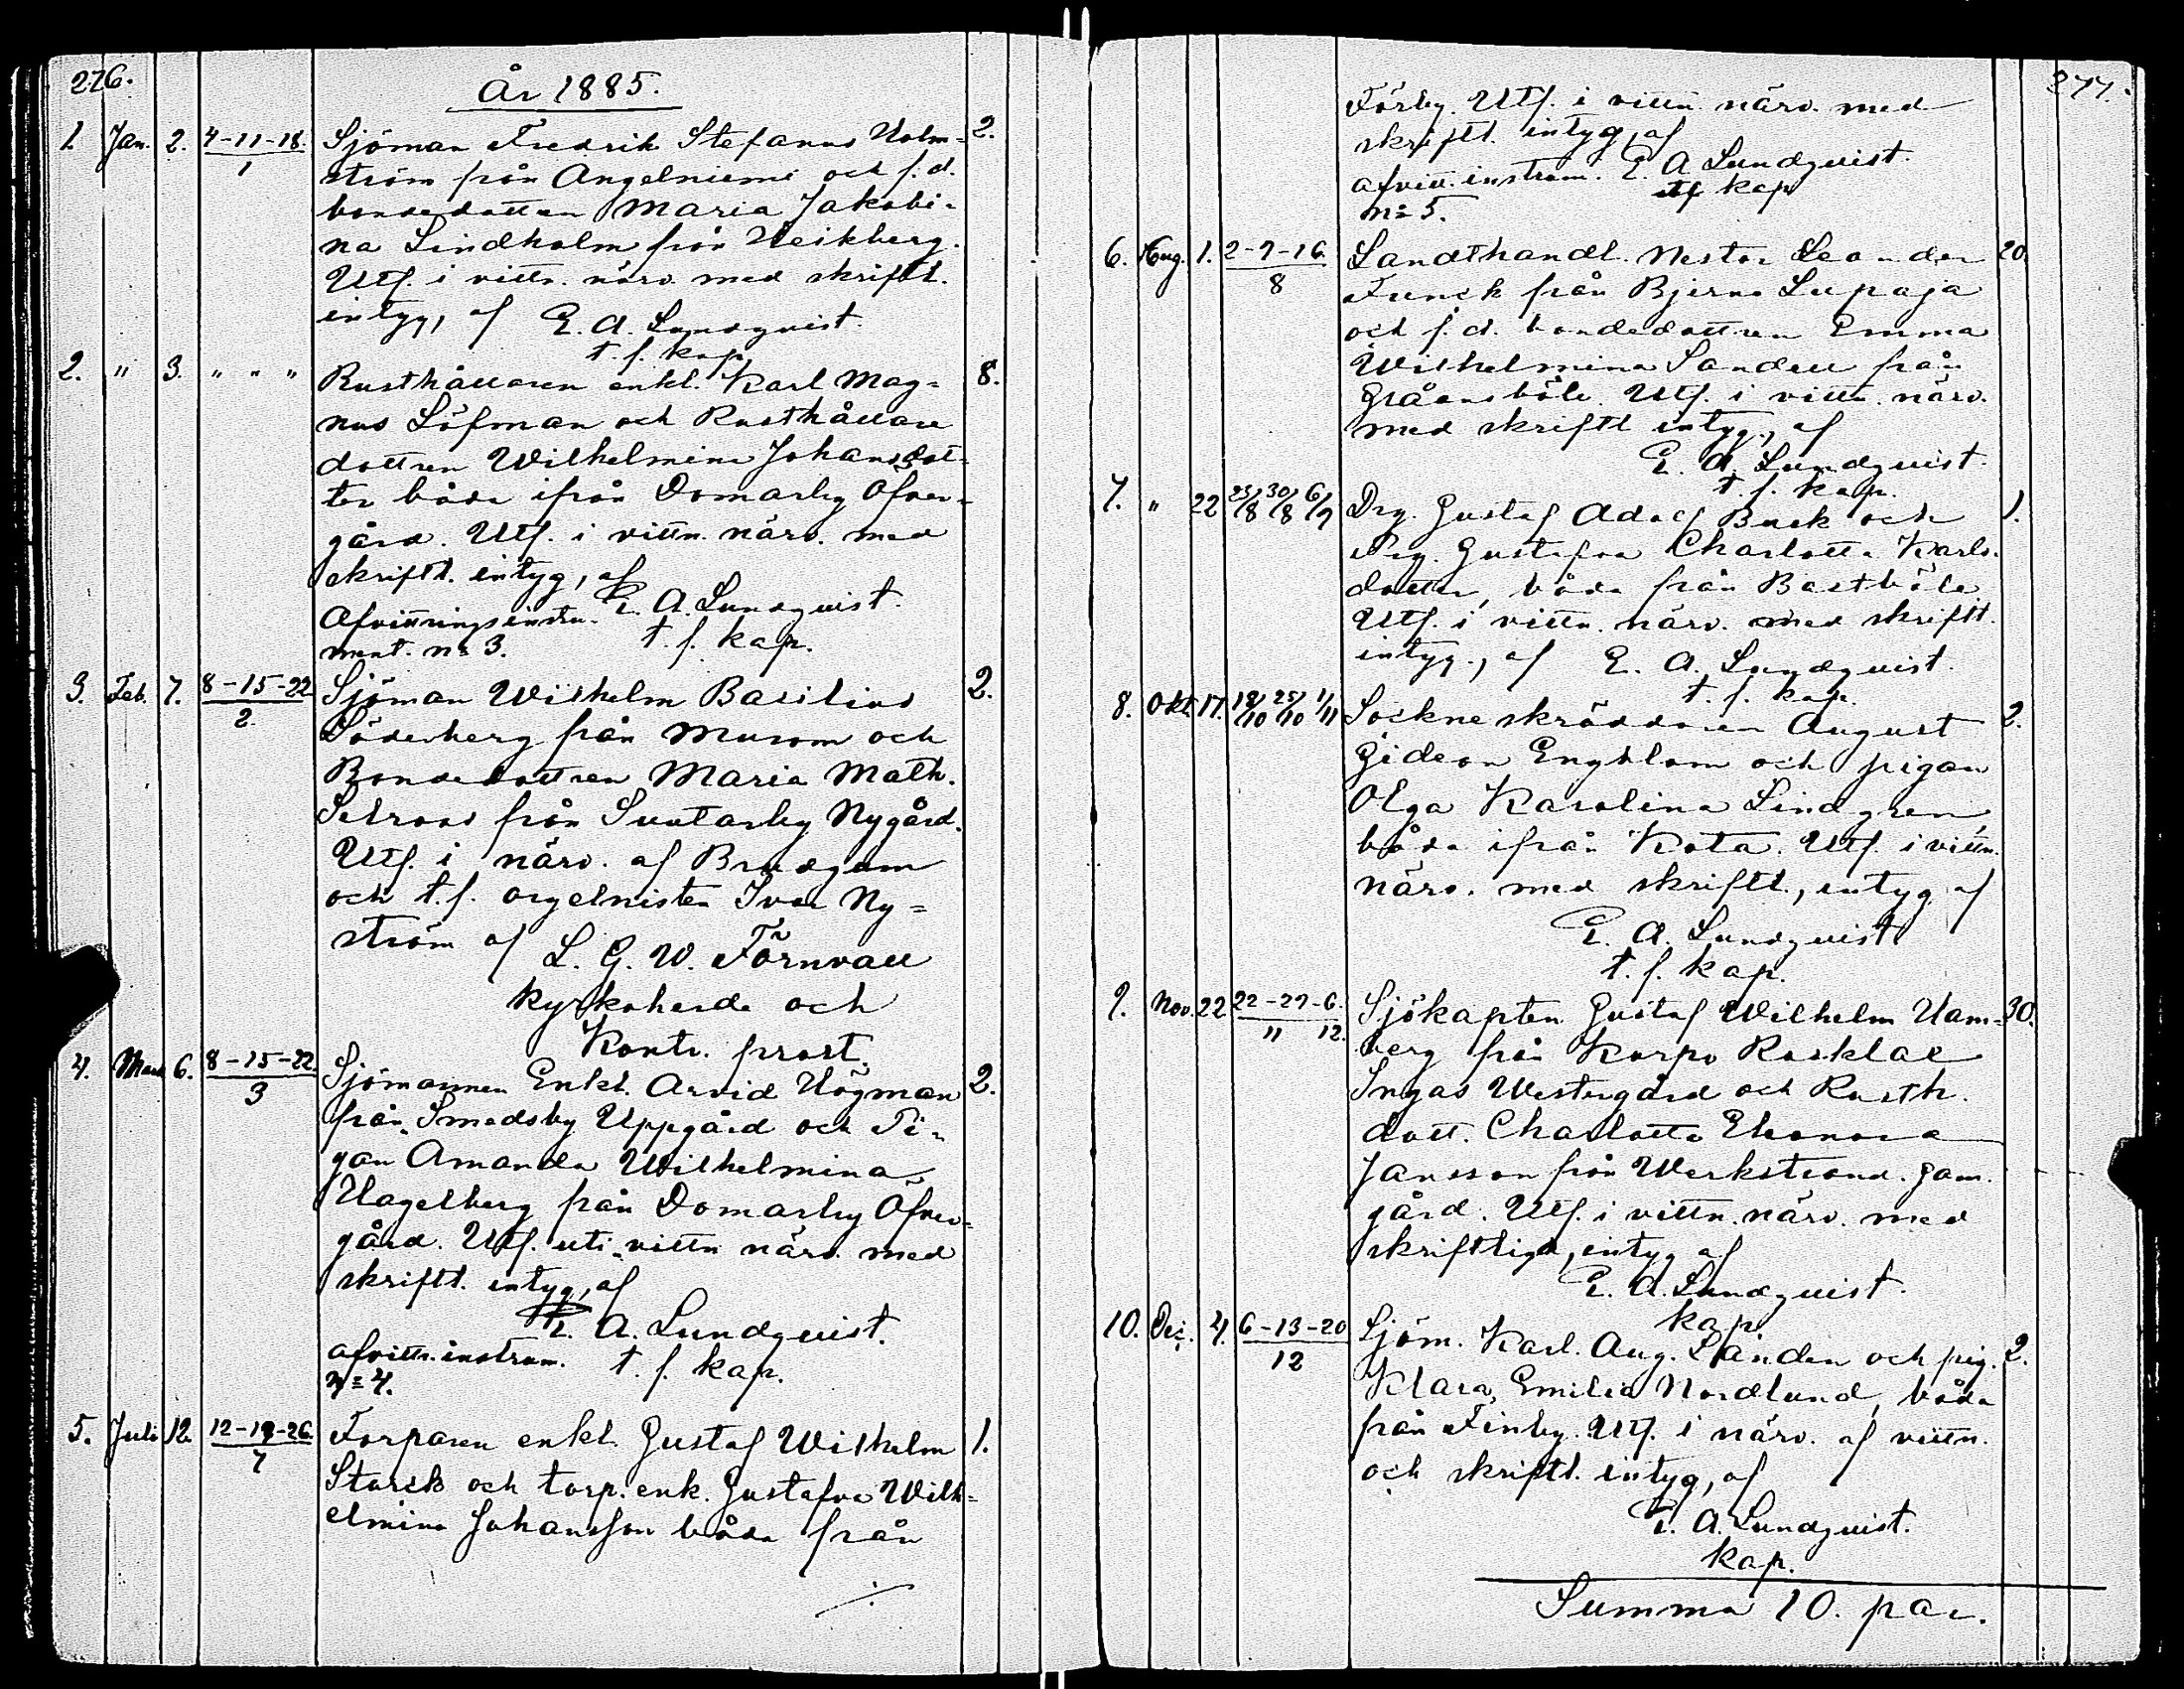 276.
År 1885.
1. Jan. 2. 4-11-18/1 Sjöman Fredrik Stefanus Holm= 2.
ström från Angelniemi och f.d.
bondedottren Maria Jakobi-
na Lindholm från Weikberg.
Utf. i vittn. närv. med skriftl.
intyg, af E. A. Lundqvist.
t. f. kap.
2. " 3. " " " Rusthållaren enkl. Karl Mag= 8.
nus Löfman och Rusthållare
dottren Wilhelmina Johansdot=
ter båda ifrån Domarby Öfver=
gård. Utf. i vittn. närv. med
skriftl. intyg, af
E. A. Lundqvist.
Afvittringsinstru-
ment. nº 3. t. f. kap.
3. Feb. 7. 8-15-22/2. Sjöman Wilhelm Basilius 2.
Söderberg från Murom och
Bondedottren Maria Math.
Selroos från Suutarby Nygård.
Utf. i närv. af Brudgum
och t.f. orgelnisten Ivar Ny=
ström af L. G. W. Törnvall
Kyrkoherde och
Kontr. prost.
4. Mars 6. 8-15-22./3 Sjömannen Enkl. Arvid Högman 2.
från Smedsby Uppgård och Pi-
gan Amanda Wilhelmina
Hagelberg från Domarby Öfver=
gård. Utf. uti vittn närv. med
skriftl. intyg, af
E. A. Lundqvist.
afvittr. instrum. t. f. kap.
nº 4.
5. Juli 12. 12-19-26/7 Torparen enkl. Gustaf Wilhelm 1.
Starck och torp. enk. Gustafva Wilh=
elmina Johansson båda från
./.
277.
Förby. Utf. i vittn. närv. med
skriftl. intyg, af
afvitt. instrum. E. A. Lundqvist.
tf kap
nº 5.
6. Aug. 1. 2-9-16./8 Landthandl. Nestor Leander 20.
Funck från Bjerno Lupaja
och f. d. bondedottren Emma
Wilhelmina Sandell från
Gråansböle. Utf. i vittn. närv.
med skriftl intyg., af
E. A. Lundqvist.
t. f. kap.
7. " 22 23/8 30/8 6/9 Drg. Gustaf Adolf Buck och 1.
Pig. Gustafva Charlotta Karls-
dotter, båda från Bastböle
Utf. i vittn. närv. med skriftl.
intyg., af E. A. Lundqvist.
t. f. kap.
8. Okt. 17. 18/10 25/10 1/11 Sockneskräddaren August 2.
Gideon Engblom och pigan
Olga Karolina Lindgren,
båda ifrån Kota. Utf. i vittn.
närv. med skriftl., intyg af
E. A. Lundqvist
t. f. kap.
9. Nov. 22 22-29-6./11 12. Sjökapten Gustaf Wilhelm Ham= 30.
berg från Korpo Rosklax
Ingas Westergård och Rusth.
dott. Charlotta Eleonora
Jansson från Werkstrand. Gam.
gård. Utf. i vittn. närv. med
skriftliga, intyg af
E. A. Lundqvist.
kap.
10. Dec. 4. 6-13-20/12 Sjöm. Karl. Aug. Landen och pig. 2.
Klara Emilia Nordlund, båda
från Finby. Utf. i närv. af vittn.
och skriftl. intyg, af
E. A. Lundqvist.
kap.
Summa 10. par.